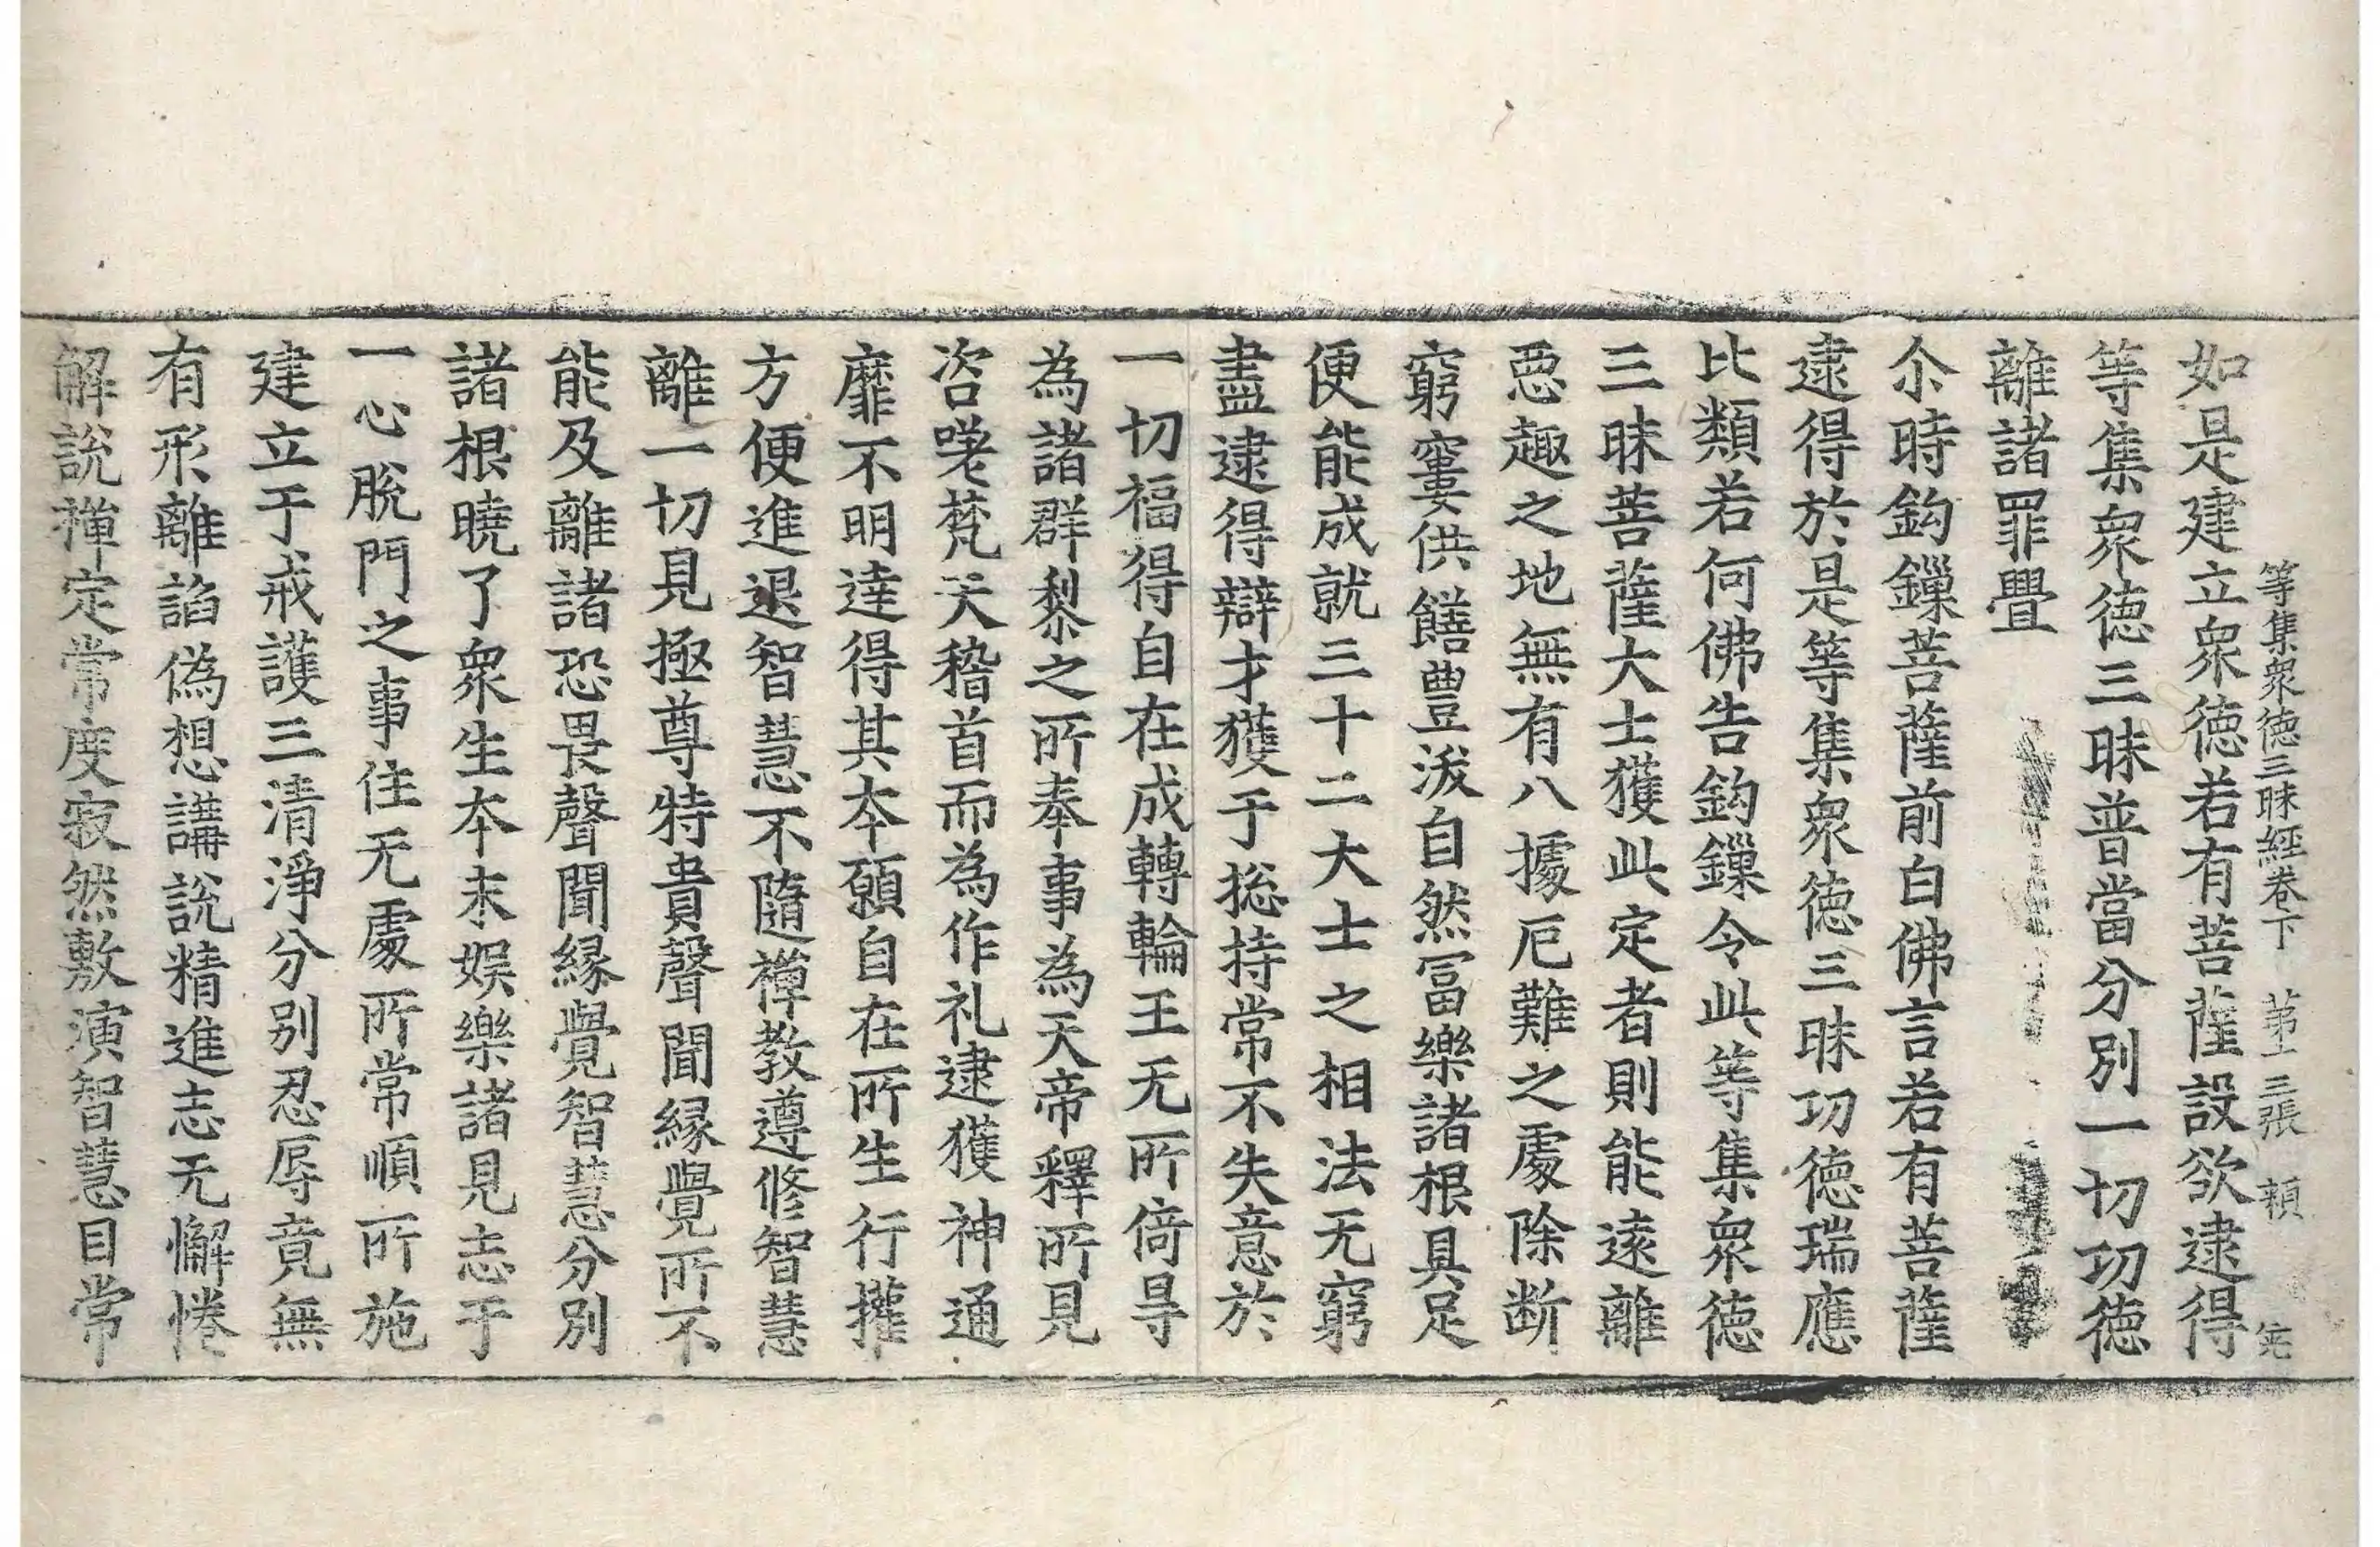 等集衆德三昧經卷下 第十三張 頼
如是建立衆德若有菩薩設欲逮得
等集衆德三昧普當分別一切功德
離諸罪舋
尒時鈎鏁菩薩前白佛言若有菩薩
逮得於是等集衆德三昧功德瑞應
比類若何佛告鈎鏁令此等集衆德
三昧菩薩大士獲此定者則能遠離
惡趣之地無有八據厄難之處除断
窮窶供饍豊溢自然冨樂諸根具足
便能成就三十二大士之相法无窮
盡逮得辯才獲于捴持常不失意於
一切福得自在成轉輪王无所倚㝵
為諸群黎之所奉事為天帝釋所見
咨嗟梵天稽首而為作礼逮獲神通
靡不明達得其夲願自在所生行㩲
方便進退智慧不隨禅教遵修智慧
離一切見極尊特貴聲聞緣覺所不
能及離諸恐畏聲聞緣覺智慧分別
諸根曉了衆生夲末娛樂諸見志于
一心脫門之事住无處所常順所施
建立于戒護三清淨分别忍辱竟無
有形離諂偽想講說精進志无懈惓
解說禅定常度寂然敷演智慧目常